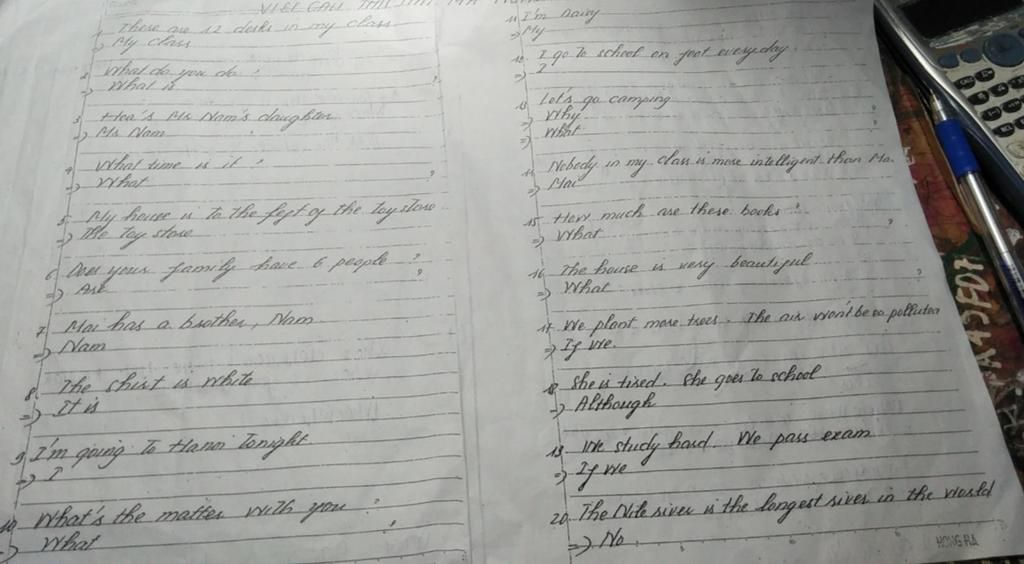 VIẾT CÂU
1 There are 12 desks in my class
=) My class
2 What do you do ?
=) What is ?
3 Hoa's Mr Nam's daughter
=) Mr Nam
4 What time is it ?
=) What ?
5 My house is to the left of the toy store
=) The toy store
6 Does your family have 6 people ?
=) Are ?
7 Mai has a brother, Nam
=) Nam
8 The shirt is white
=) It is
9 I'm going to Hanoi tonight
=) I
10 What's the matter with you ?
=) What ?
11 I'm Daisy
=) My
12 I go to school on foot everyday
=) I
13 Let's go camping
=) Why ?
=) What ?
14 Nobody in my class is more intelligent than Mai
=) Mai
15 How much are these books ?
=) What ?
16 The house is very beautiful
=) What ?
17 We plant more trees. The air won't be polluted
=) If we.
18 She is tired. She goes to school
=) Although
19 We study hard. We pass exam
=) If we
20 The Nile river is the longest river in the world
=) No
HONG HA